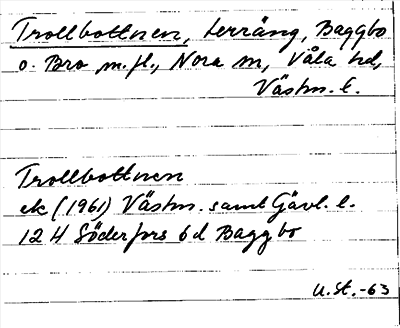 Trollbottnen, terräng, Baggbo
o. Bro m.fl., Nora sn, Våla hd,
Västm. l.
Trollbottnen
ek (1961) Västm. samt Gävl. l.
12 H Söderfors 6d Baggbo
U.St.-63